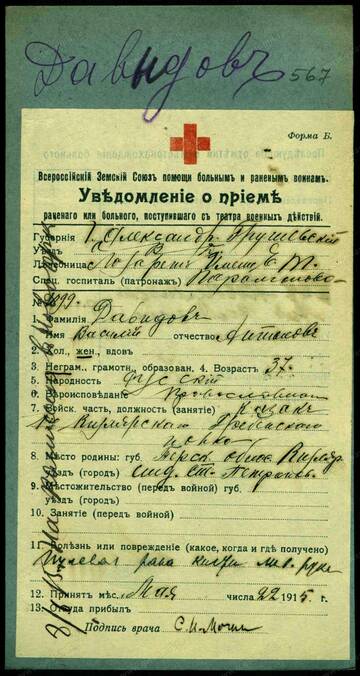 Давыдовъ 567
Форма Б.
Всероссійскій Земскій Союзъ помощи больнымъ и раненымъ воинамъ.
Увѣдомленіе о пріемѣ
раненаго или больного, поступившаго съ театра военныхъ дѣйствій.
Губернія Г. Александр. Грушевскій
Уѣздъ
Лѣчебница Лазаретъ Имени Е. Т.
Спец. госпиталь (патронажъ) Парамонова
№
1. Фамилія Давидовъ
Имя Василій отчество Антоновъ
2. Хол., жен., вдовъ
3. Неграм., грамотн., образован. 4. Возрастъ 37.
5. Народность русскій
6. Вѣроисповѣданіе Православный
7. Войск. часть, должность (занятіе) казакъ
1 Кизлярскаго Гребенского
полка
8. Мѣсто родины: губ. Терск. обл. Кизляр.
уѣздъ (городъ)
9. Мѣстожительство (передъ войной) губ.
уѣздъ (городъ)
10. Занятіе (передъ войной)
11. Болѣзнь или поврежденіе (какое, когда и гдѣ получено)
Пулевая рана кисти лѣв. руки
12. Принятъ мѣс. Мая числа 22 1915 г.
13. Откуда прибылъ
Подпись врача